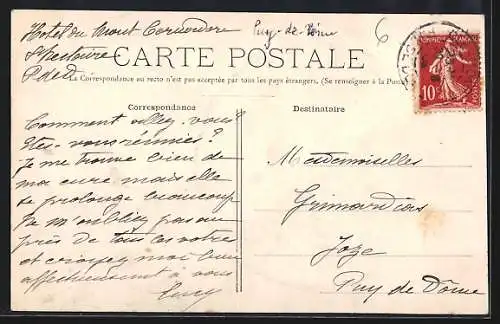 Hotel du Mont Cornadore
St Nectaire
P de D
Puy-de-Dôme
6
CARTE POSTALE
La Correspondance au recto n'est pas acceptée par tous les pays étrangers. (Se renseigner à la Poste
Correspondance
Destinataire
10
Comment allez-vous?
Etes-vous réunies?
Je me trouve bien de
ma cure mais elle
se prolonge beaucoup
Ne m'oubliez pas au
près de tous les vôtres
et croyez moi bien
affectueusement à vous
Lucy
Mesdemoiselles
Grimardias
Joze
Puy de Dôme